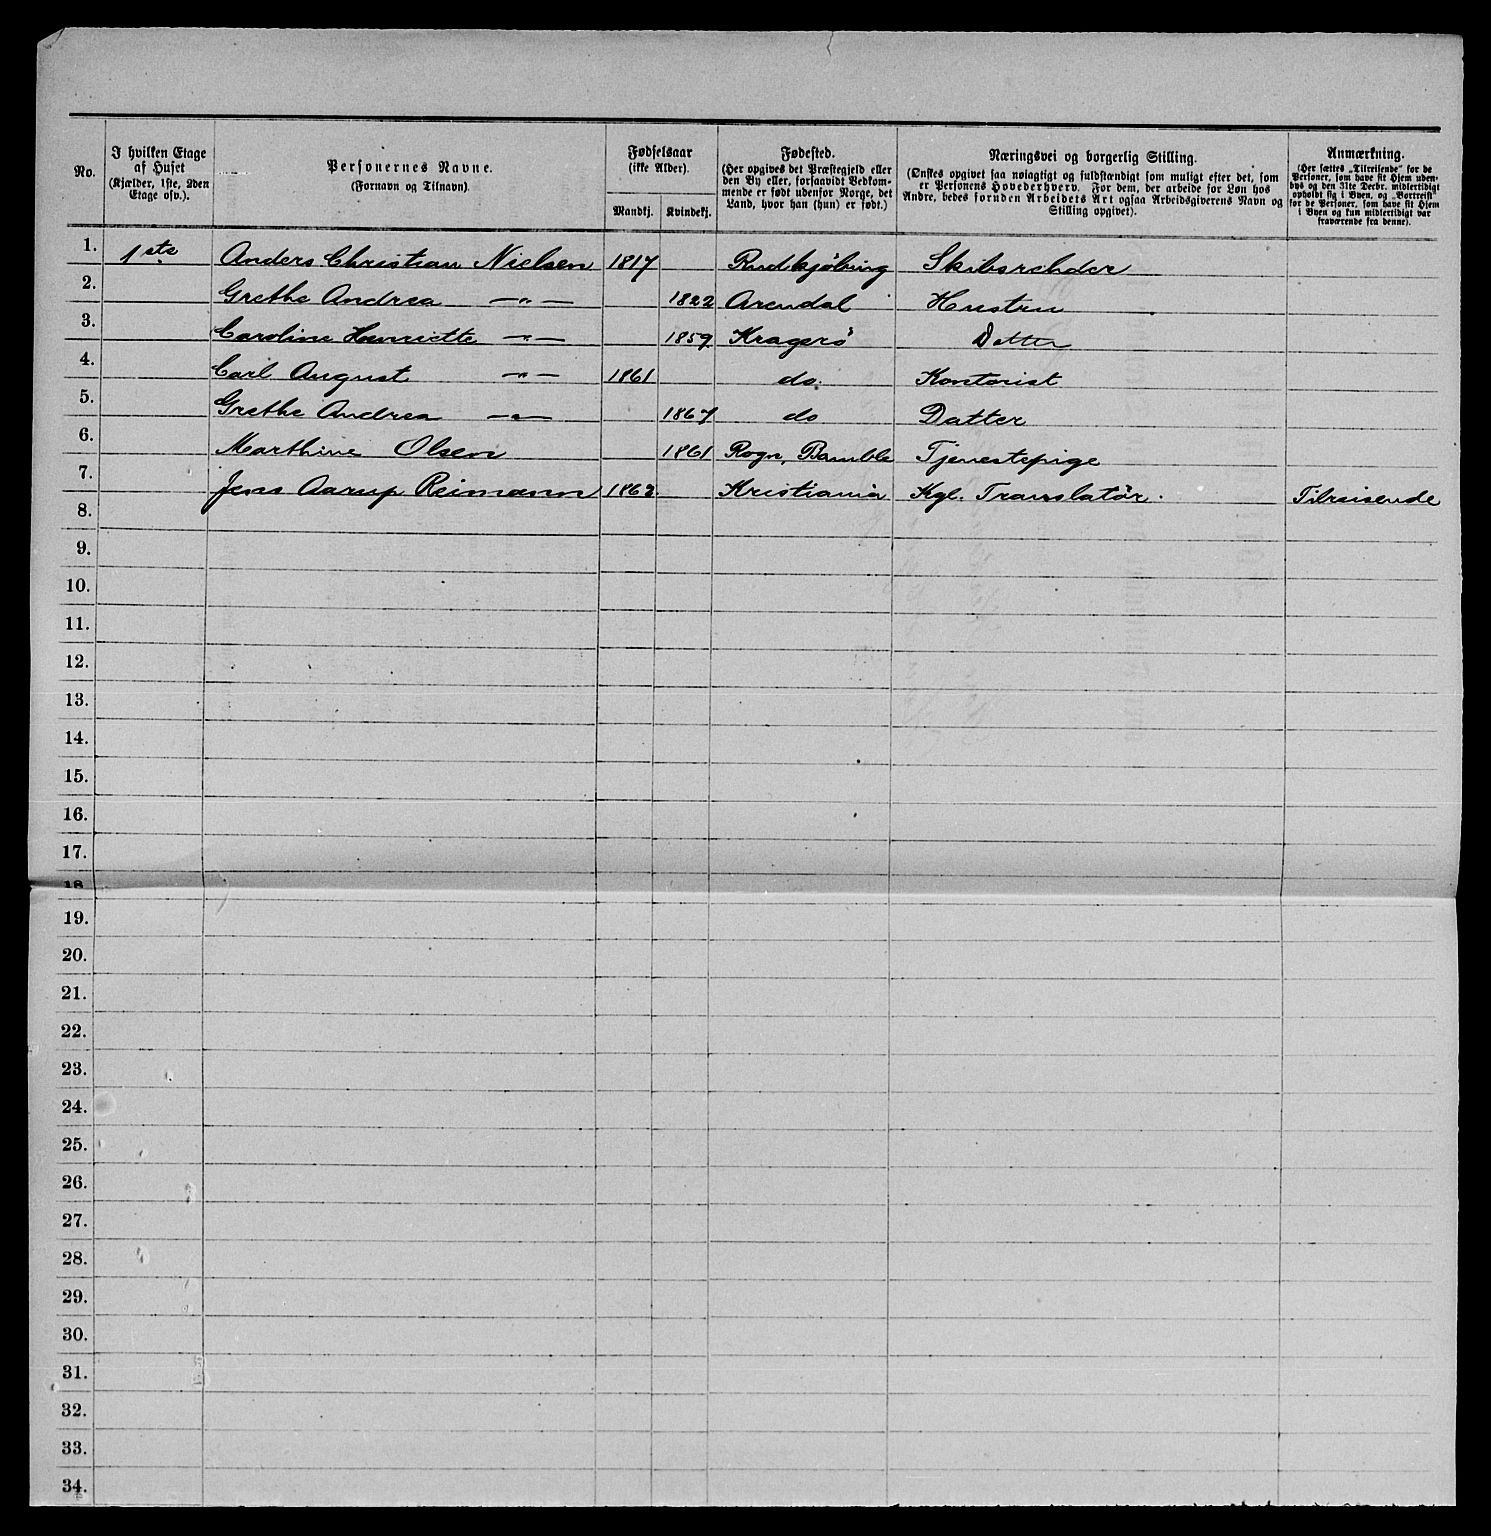 No.
I hvilken Etage af Huset (Kjælder, 1ste, 2den Etage osv.).
Personernes Navne. (Fornavn og Tilnavn).
Fødselsaar (ikke Alder).
Mandkj. Kvindekj.
Fødested. (Her opgives det Præstegjeld eller den By eller, forsaavidt Vedkommende er født udenfor Norge, det Land, hvor han (hun) er født.)
Næringsvei og borgerlig Stilling. (Ønskes opgivet saa nøiagtigt og fuldstændigt som muligt efter det, som er Personens Hovederhverv. For dem, der arbeide for Løn hos Andre, bedes foruden Arbeidets Art ogsaa Arbeidsgiverens Navn og Stilling opgivet).
Anmærkning. (Her sættes „Tilreisende" for de Personer, som have sit Hjem udenbys og den 31te Decbr. midlertidigt opholdt sig i Byen, og „Bortreist" for de Personer, som have sit Hjem i Byen og kun midlertidigt var fraværende fra denne).
1. 1ste Anders Christian Nielsen 1817 Rudkjöbing Skibsrehder
2. Grethe Andrea —"— 1822 Arendal Hustru
3. Caroline Henriette —"— 1859 Kragerö Datter
4. Carl August —"— 1861 do. Kontorist
5. Grethe Andrea —"— 1867 do Datter
6. Marthine Olsen 1861 Rogn, Bamble Tjenestepige
7. Jens Aarup Reimann 1862 Kristiania Kgl. Translatör. Tilreisende
8.
9.
10.
11.
12.
13.
14.
15.
16.
17.
18.
19.
20.
21.
22.
23.
24.
25.
26.
27.
28.
29.
30.
31.
32.
33.
34.